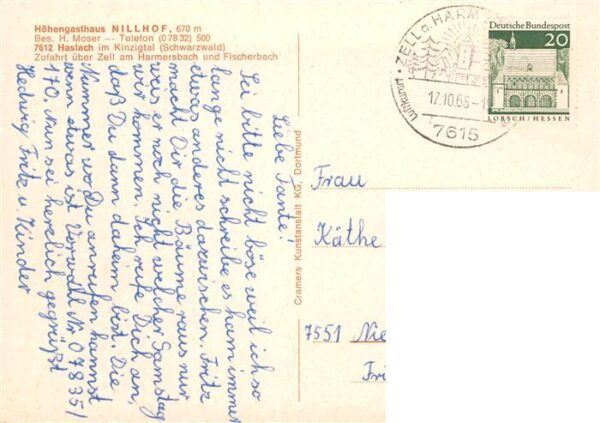 Höhengasthaus NILLHOF, 670 m
Bes. H. Moser — Telefon (0 78 32) 500
7612 Haslach im Kinzigtal (Schwarzwald)
Zufahrt über Zell am Harmersbach und Fischerbach
Liebe Tante!
Sei bitte nicht böse weil ich so
lange nicht schreibe es kam immer
etwas anderes dazwischen. Fritz
macht Dir die Bäume raus nur
weis er noch nicht welcher Samstag
wir kommen. Ich rufe Dich an,
daß Du dann daheim bist. Die
Nummer wo Du anrufen kannst
wenn etwas ist Vorwahl Nr. 07835/
170. Nun sei herzlich gegrüßt
Hedwig Fritz u. Kinder
Cramers Kunstanstalt KG, Dortmund
ZELL a. HARM
Luftkurort
17.10.66-1
7615
Deutsche Bundespost
20
LORSCH/HESSEN
Frau
Käthe
7551 Nie
Fri